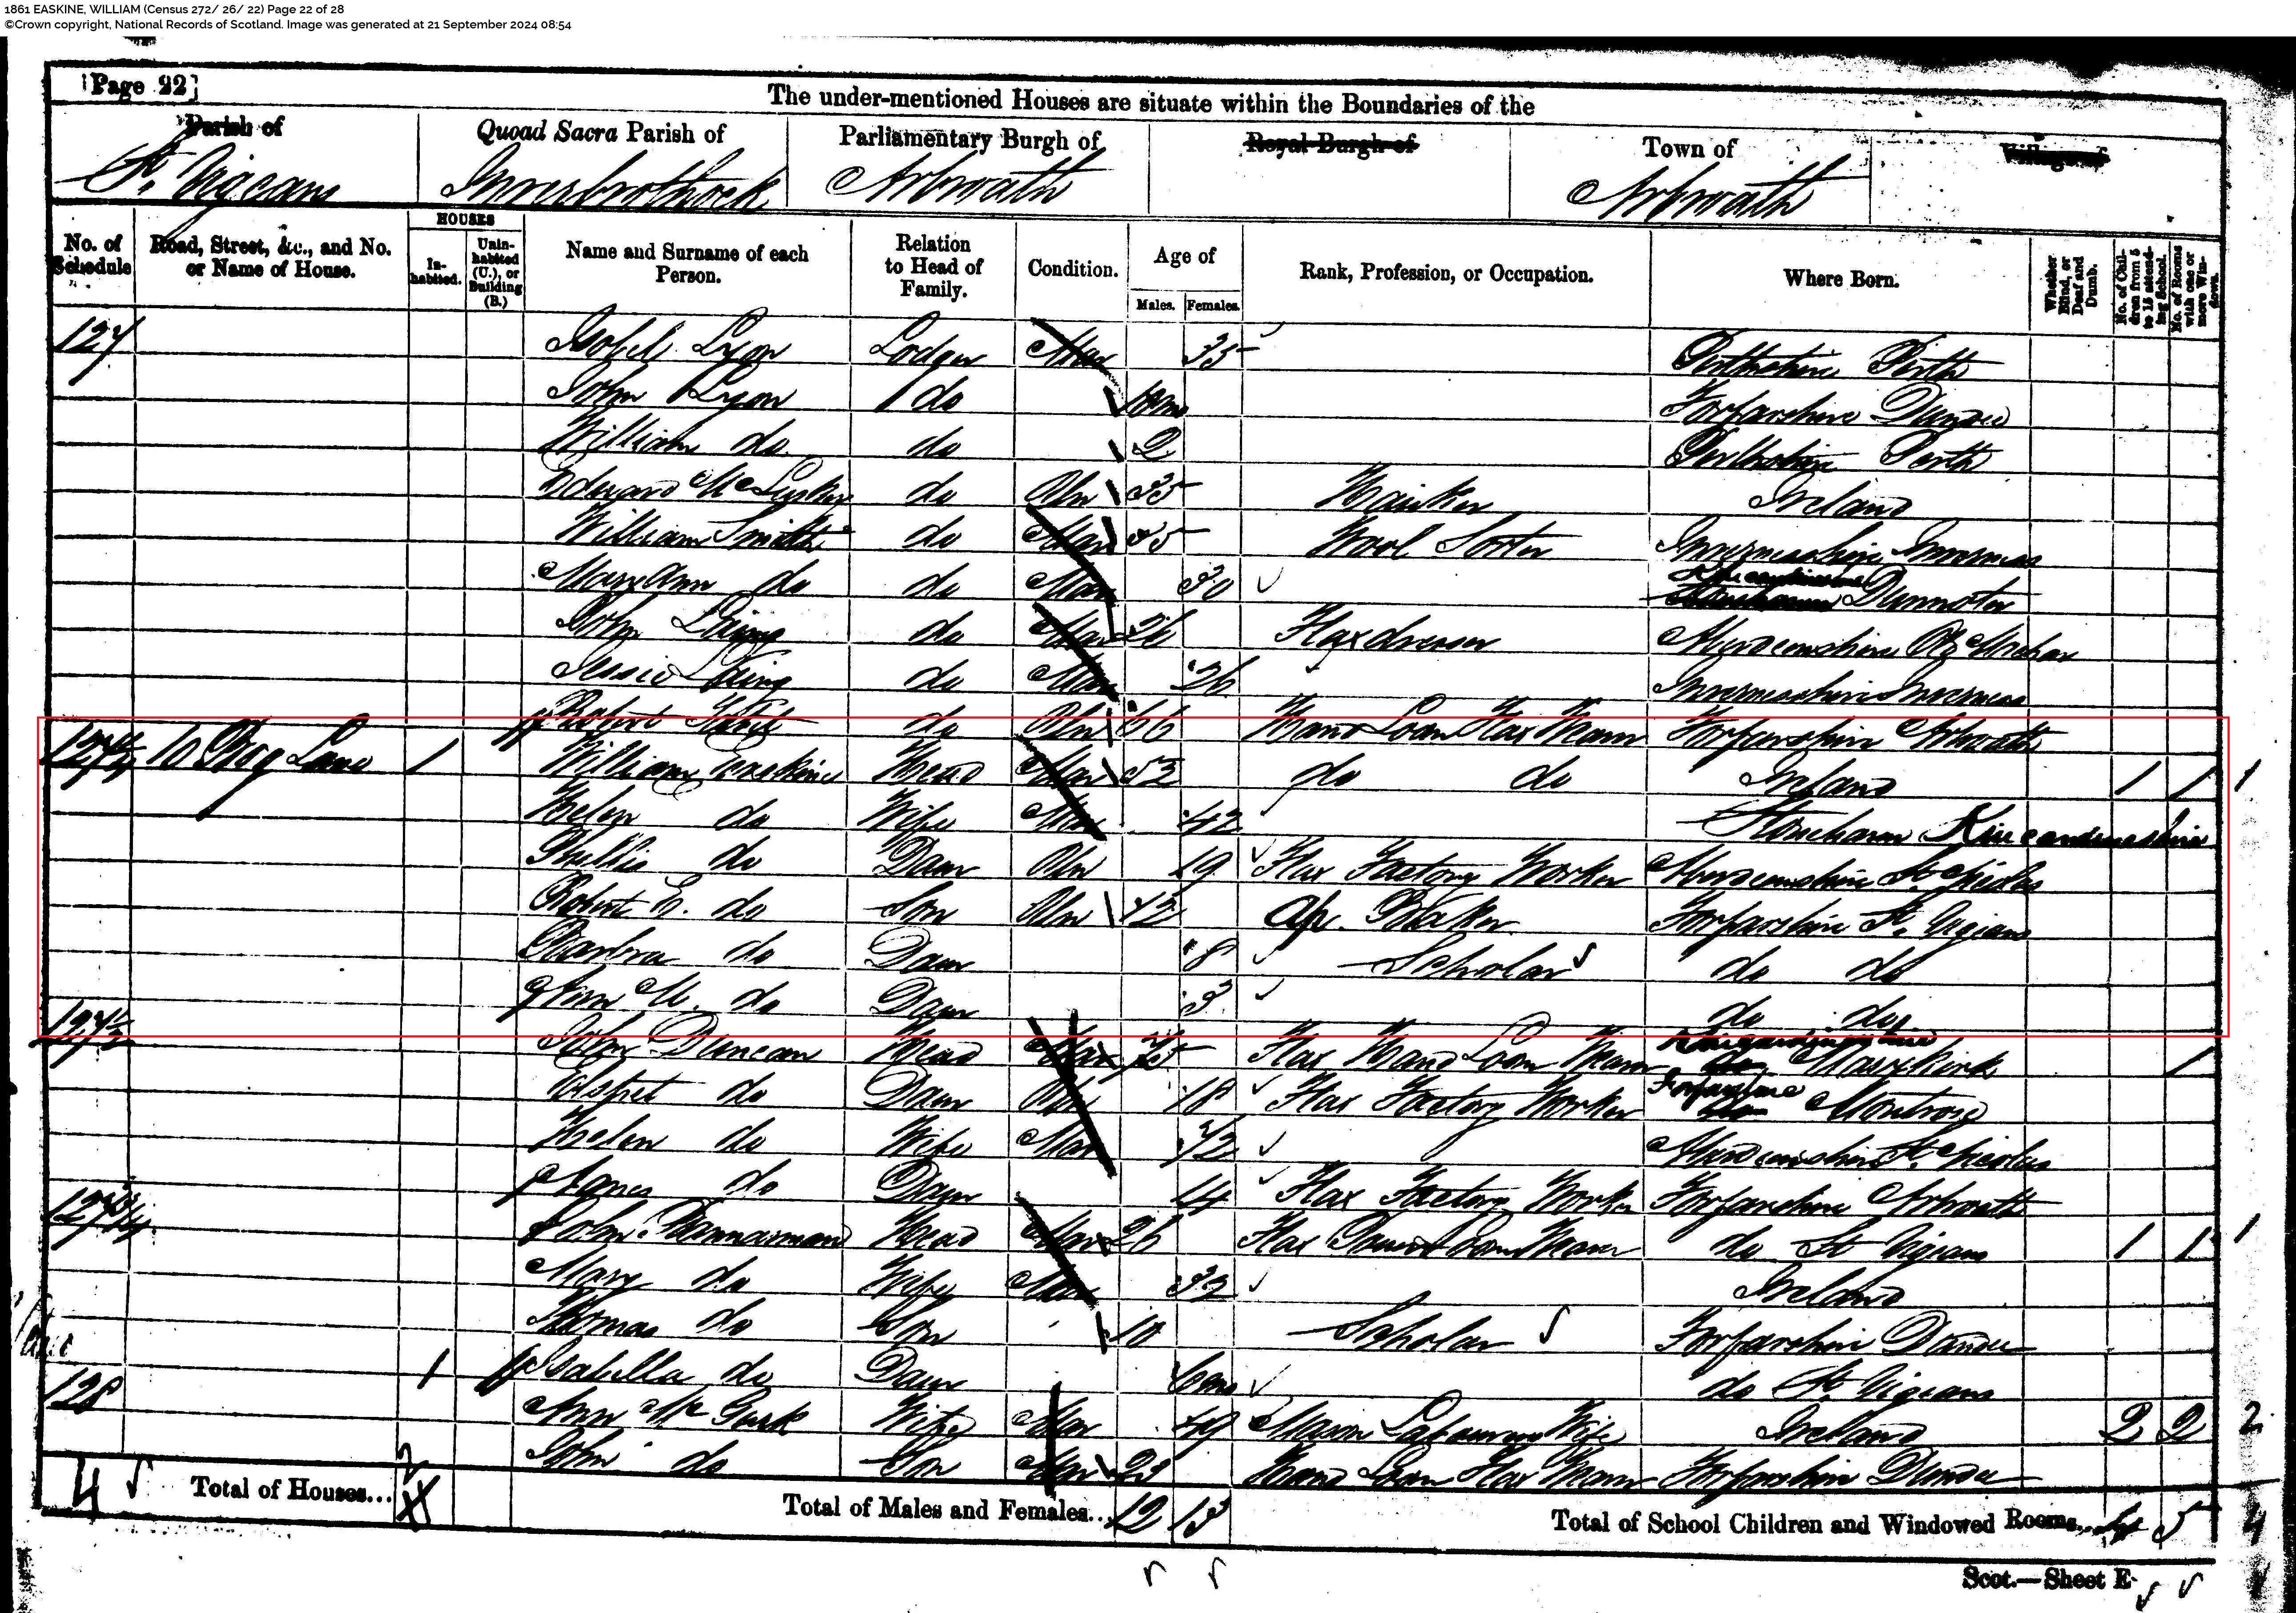 1861 EASKINE, WILLIAM (Census 272/ 26/ 22) Page 22 of 28
©Crown copyright, National Records of Scotland. Image was generated at 21 September 2024 08:54
[Page 22]
The under-mentioned Houses are situate within the Boundaries of the
Parish of Quoad Sacra Parish of Parliamentary Burgh of Royal Burgh of Town of Village of
St. Vigeans Inverbrothock Arbroath Arbroath
No. of Schedule Road, Street, &c., and No. or Name of House. HOUSES In-habited. Unin-habited (U.), or Building (B.) Name and Surname of each Person. Relation to Head of Family. Condition. Age of Males. Females. Rank, Profession, or Occupation. Where Born. Whether Blind, or Deaf and Dumb. No. of Chil-dren from 5 to 15 attend-ing School. No. of Rooms with one or more Win-dows.
127 Isobel Lyon Lodger Mar 35 Perthshire Perth
John Lyon do 10m Forfarshire Dundee
William do do 2 Perthshire Perth
Edward do Un 35 Ireland
William Smith do Mar 45 Wool Sorter Invernesshire Inverness
Mary Ann do do Mar 30 Kincardineshire Dunnoter
John Laing do Mar 26 Flaxdresser Aberdeenshire Old Machar
Jessie Laing do Mar 26 Invernesshire Inverness
Robert do Un 66 Hand Loom Flax Weaver Forfarshire Arbroath
127 10 Bog Lane 1 William Erskine Head Mar 52 do do Ireland 1 1 1
Helen do Wife Mar 42 Stonehaven Kincardineshire
Phillis do Daur Un 19 Flax Factory Worker Aberdeenshire St. Nicolas
Robert E. do Son Un 12 Ap. Baker Forfarshire St. Vigeans
Barbra do Daur 8 Scholar do do
Ann M. do Daur 3 do do
127 John Duncan Head Mar Flax Hand Loom Weaver Kincardineshire Marykirk 1
Elspet do Daur Un 18 Flax Factory Worker Forfarshire Montrose
Helen do Wife Mar 42 Aberdeenshire St. Nicolas
Agnes do Daur 14 Flax Factory Worker Forfarshire Arbroath
127 John Head Mar 26 Flax Power Loom Weaver do St Vigeans 1 1 1
Mary do Wife Mar 32 Ireland
Thomas do Son 10 Scholar Forfarshire Dundee
1 Isabella do Daur 6mo do St. Vigeans
128 Ann Mc Gurk Wife Mar 49 Mason Labourers Wife Ireland 2 2 2
John do Son 22 Hand Loom Flax Weaver Forfarshire Dundee
4 Total of Houses... 2 Total of Males and Females... 12 13 Total of School Children and Windowed Rooms... 5 4
Scot.—Sheet E